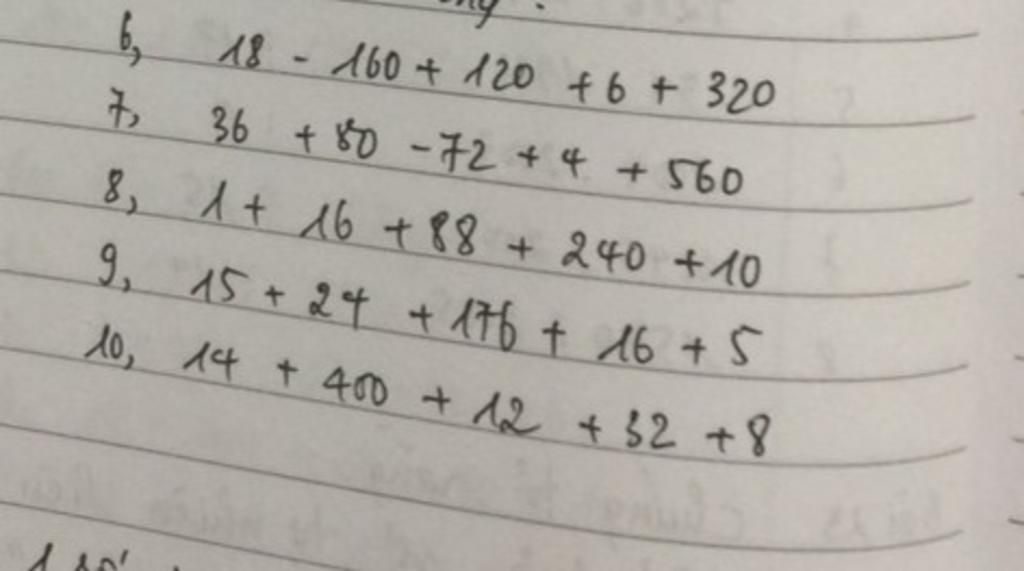 6, 18 - 160 + 120 + 6 + 320
7, 36 + 80 - 72 + 4 + 560
8, 1 + 16 + 88 + 240 + 10
9, 15 + 24 + 176 + 16 + 5
10, 14 + 400 + 12 + 32 + 8